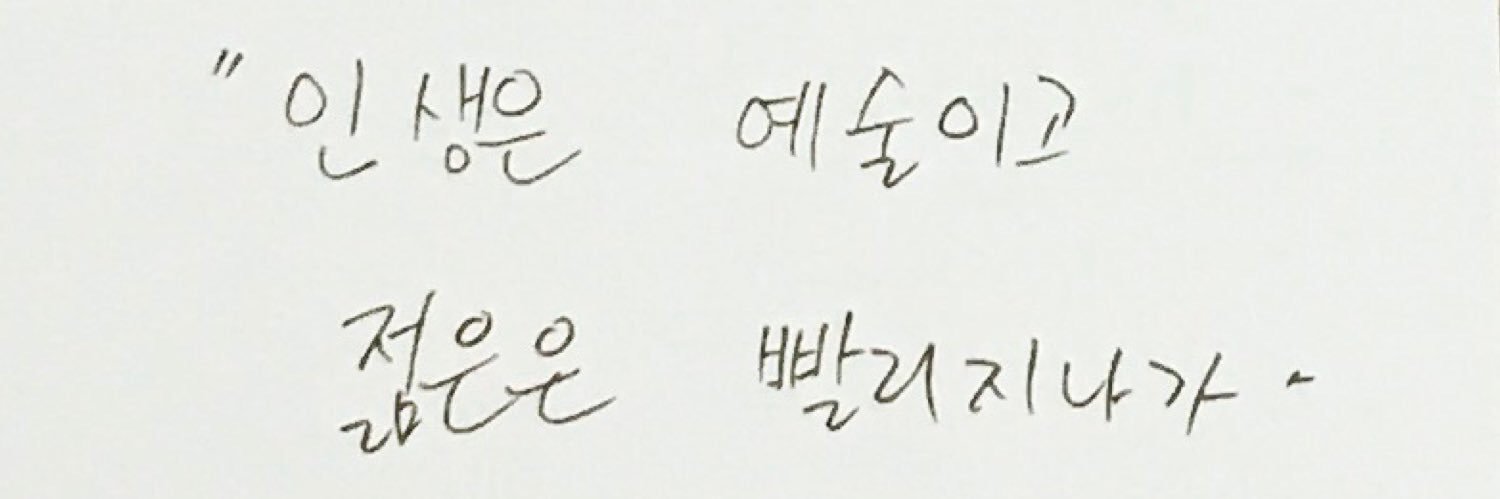 "인생은 예술이고
젊은은 빨리지나가.